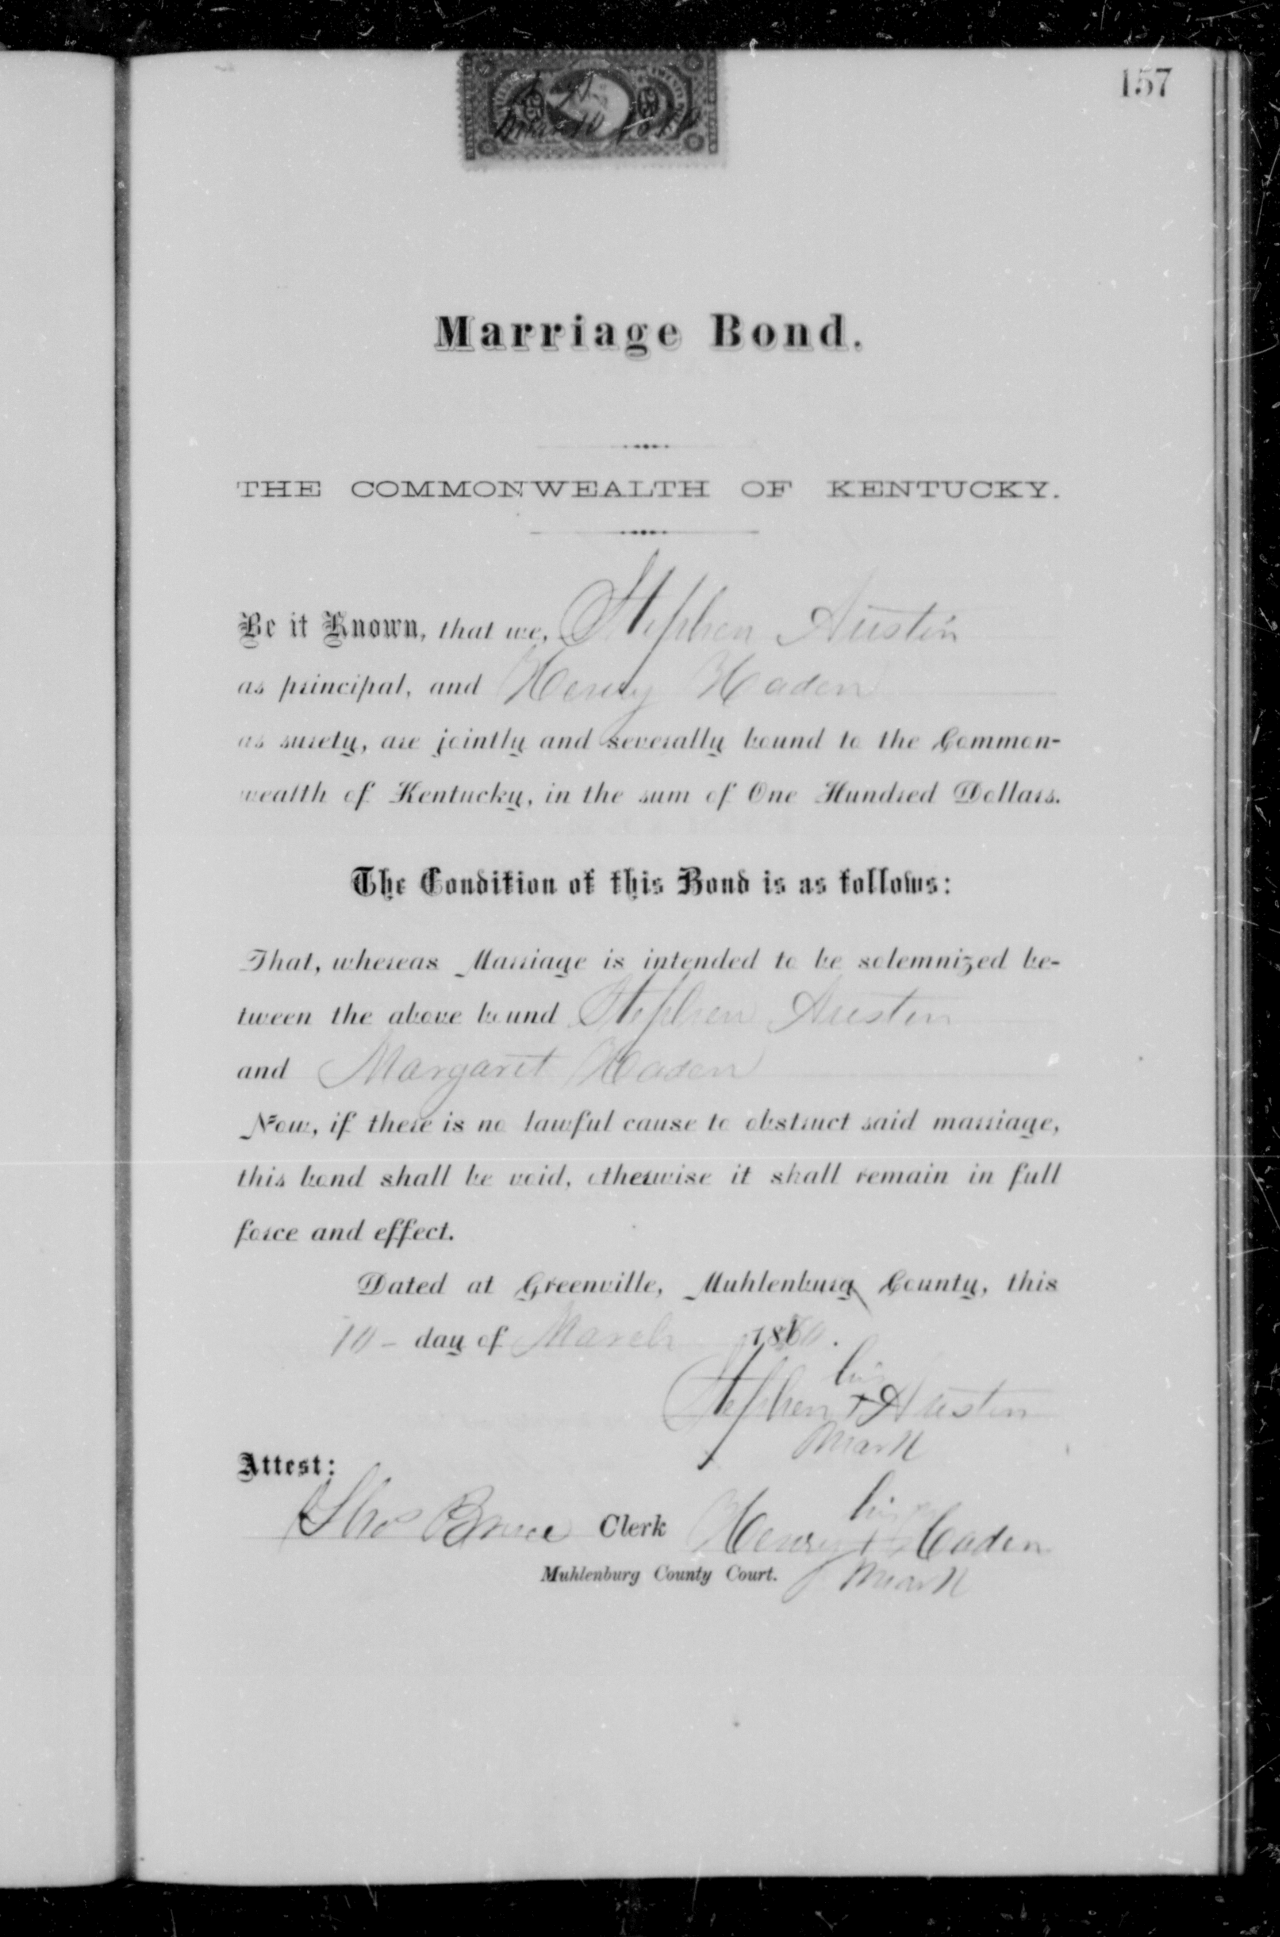 157
Marriage Bond.
THE COMMONWEALTH OF KENTUCKY.
Be it Known, that we, Stephen Austin
as principal, and Henry Haden
as surety, are jointly and severally bound to the Common-
wealth of Kentucky, in the sum of One Hundred Dollars.
The Condition of this Bond is as follows:
That, whereas Marriage is intended to be solemnized be-
tween the above bound Stephen Austin
and Margaret Haden
Now, if there is no lawful cause to obstruct said marriage,
this bond shall be void, otherwise it shall remain in full
force and effect.
Dated at Greenville, Muhlenburg County, this
10 - day of March
his
Stephen + Austin
Mark
Attest:
his
Thos Bruce Clerk Henry + Haden
Muhlenburg County Court. Mark